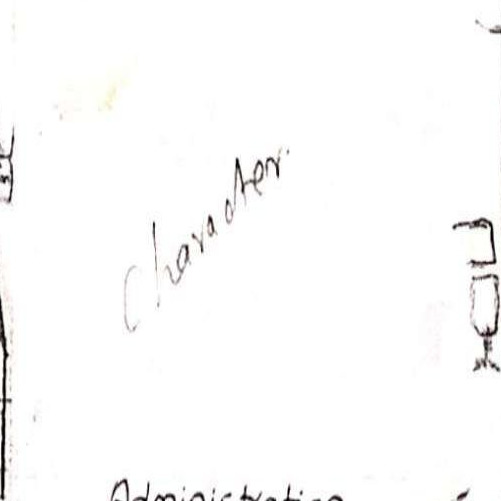 Character.
Administration